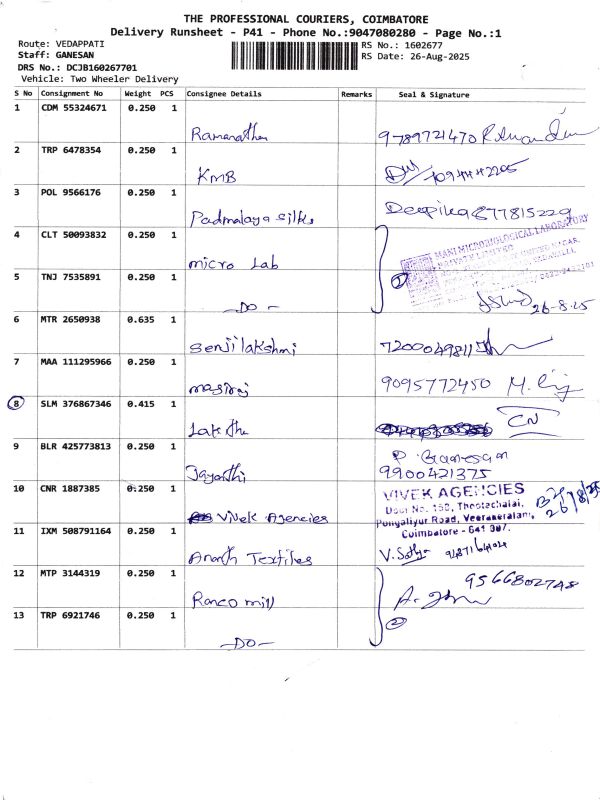 THE PROFESSIONAL COURIERS, COIMBATORE
Delivery Runsheet - P41 - Phone No.:9047080280 - Page No.:1
Route: VEDAPPATI
Staff: GANESAN
DRS No.: DCJB160267701
Vehicle: Two Wheeler Delivery
RS No.: 1602677
RS Date: 26-Aug-2025
S No Consignment No Weight PCS Consignee Details Remarks Seal & Signature
1 CDM 55324671 0.250 1
Ramanathan 9789721470
2 TRP 6478354 0.250 1
KMB
3 POL 9566176 0.250 1
Padmalaya silks Deepika 877815229
4 CLT 50093832 0.250 1
micro Lab
MAKI MICROBIOLOGICAL LABORATORY
PRIVATE LIMITED
5 TNJ 7535891 0.250 1
1
-DO- 26-8-25
6 MTR 2650938 0.635 1
Senjilakshmi 7200049811
7 MAA 111295966 0.250 1
9095772450
8 SLM 376867346 0.415 1
CN
9 BLR 425773813 0.250 1
Jayanthi
P Ganesan
9900421375
10 CNR 1887385 0.250 1
Vivek Agencies
VIVEK AGENCIES
Door No. 150, Theetachalai,
Pooyaliyur Road, Veerakeralam,
Coimbatore - 641 007.
26/8/25
11 IXM 508791164 0.250 1
Ananth Textiles V. Sathya
12 MTP 3144319 0.250 1
Ranco mill 9566802748
13 TRP 6921746 0.250 1
2
-DO-